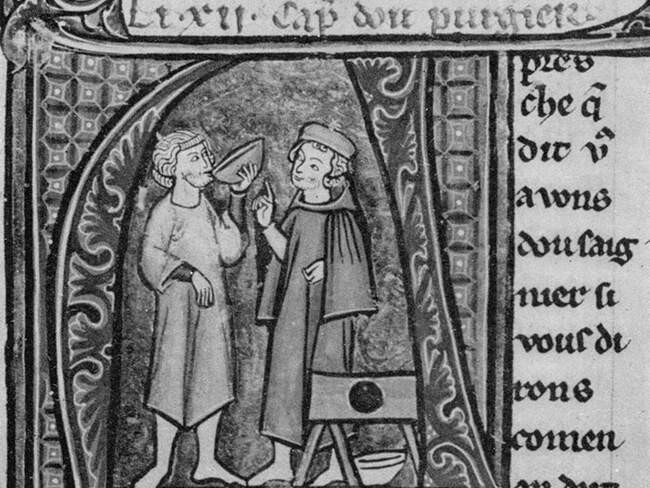 Li·xii· Cap̃ dou purgier
pres
che q̃
dit ṽ
avons
dou saig
nier si
vous di
rons
comen